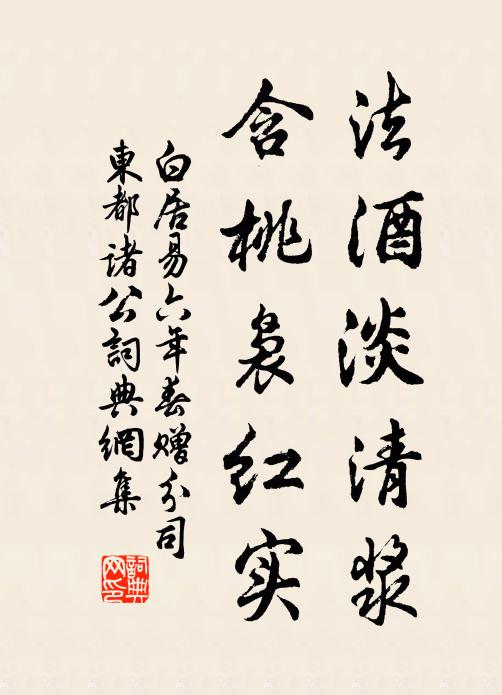 法酒淡清浆
含桃袅红实
白居易六年春赠分司
東都诸公詞典網集
詞典网印